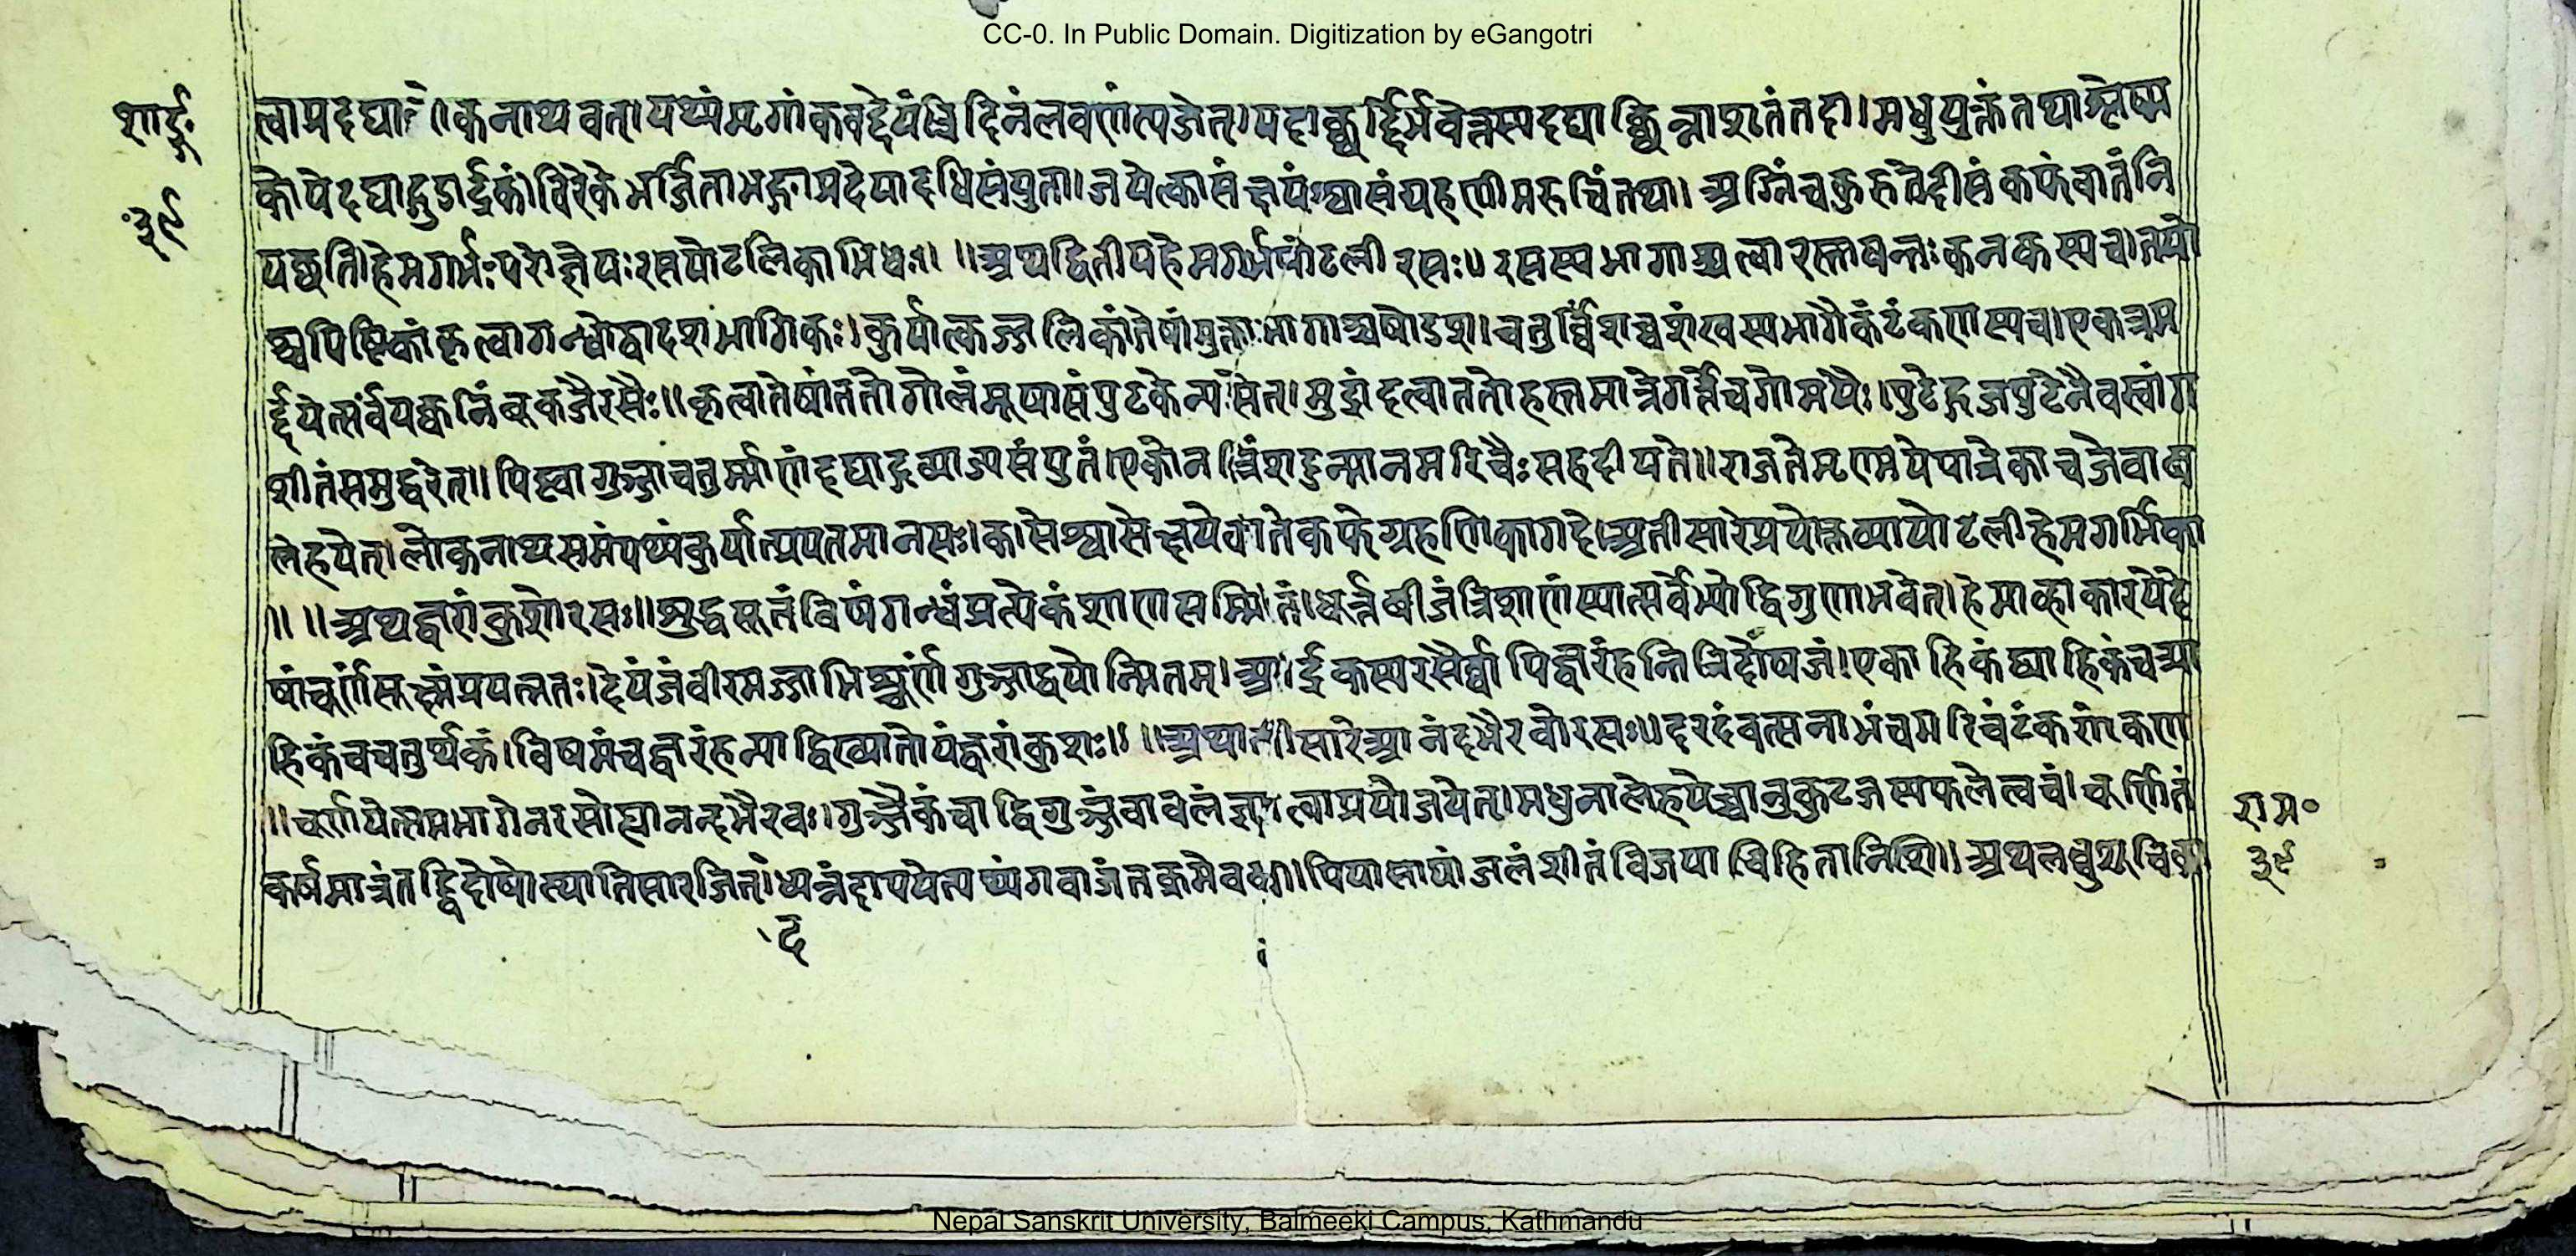 CC-0. In Public Domain. Digitization by eGangotri
शार्ङ्ग॰
३९
त्वा प्रदद्या कनाथवत्। पथ्यं मृगांकवद्देयं त्रिदिनं लवणं त्यजेत्। यदा छर्द्दिर्भवेत्तस्य दद्याच्छिन्नाशृतं तदा। मधुयुक्तं तथा श्लेष्म
कोपे दद्याद्गुडार्द्रकं। विरेके भर्जिता भङ्गा प्रदेया दधिसंयुता। जयेत्कासं क्षयं श्वासं ग्रहणीमरुचिं तथा। अग्निं च कुरुते दीप्तं कफं वातं नि
यछति। हेमगर्भः परो ज्ञेयः रसपोटलिकाभिधः॥ ॥अथ द्वितीय हेमगर्भपोटली रसः॥ रसस्य भागाश्चत्वारस्तावन्तः कनकस्य च। तयो
श्च पिष्टिकां कृत्वा गन्धो द्वादशभागिकः। कुर्यात्कज्जलिकां तेषां मुक्ताभागाश्च षोडश। चतुर्विंशच्च शंखस्य भागैकं टंकणस्य च। एकत्र म
र्द्दयेत्सर्वं पक्वनिंबुकजै रसैः॥ कृत्वा तेषां ततो गोलं मूषासंपुटके न्यसेत्। मुद्रां दत्वा ततो हस्तमात्रे गर्त्ते च गोमयैः। पुटेद्गजपुटेनैव स्वांग
शीतं समुद्धरेत्॥ पिष्ट्वा गुञ्जाचतुर्म्मानं दद्याद्गव्याज्यसंयुतं। एकोनत्रिंशदुन्मानमरिचैः सह दीयते॥ राजते मृण्मये पात्रे काचजे वाव
लेहयेत्। लोकनाथसमं पथ्यं कुर्यात्प्रयतमानसः। कासे श्वासे क्षये वाते कफे ग्रहणिकागदे। अतीसारे प्रयोक्तव्या पोटली हेमगर्भिका
॥ ॥अथ ज्वरांकुशो रसः॥ शुद्धसूतं विषं गन्धं प्रत्येकं शाणसम्मितं। धूर्त्तबीजं त्रिशाणं स्यात्सर्वेभ्यो द्विगुणा भवेत्। हेमाह्वा कारयेदे
षां चूर्णं सूक्ष्मं प्रयत्नतः। देयं जंवीरमज्जाभिश्चूर्णं गुञ्जाद्वयोन्मितम्। आर्द्रकस्य रसैर्व्वापि ज्वरं हन्ति त्रिदोषजं। एकाहिकं द्व्याहिकं च त्र्या
हिकं च चतुर्थकं। विषमं च ज्वरं हन्याद्विख्यातोयं ज्वरांकुशः॥ ॥अथातीसारे आनंदभैरवो रसः॥ दरदं वत्सनाभं च मरिचं टंकणं कणा
॥चूर्णयेत्समभागेन रसो ह्यानन्दभैरवः। गुञ्जैकं वा द्विगुञ्जं वा वलं ज्ञात्वा प्रयोजयेत्। मधुना लेहयेच्चानु कुटजस्य फलं त्वचं। चूर्णितं
कर्षमात्रं तद्द्विदोषोस्यातिसारजित्। ध्यन्नं दापयेत्पथ्यं गवाजं तक्रमेव च। पिपासायां जलं शीतं विजया विहिता निशि॥ अथ लघुशूचिका
द
राम॰
३९
Nepal Sanskrit University, Balmeeki Campus, Kathmandu